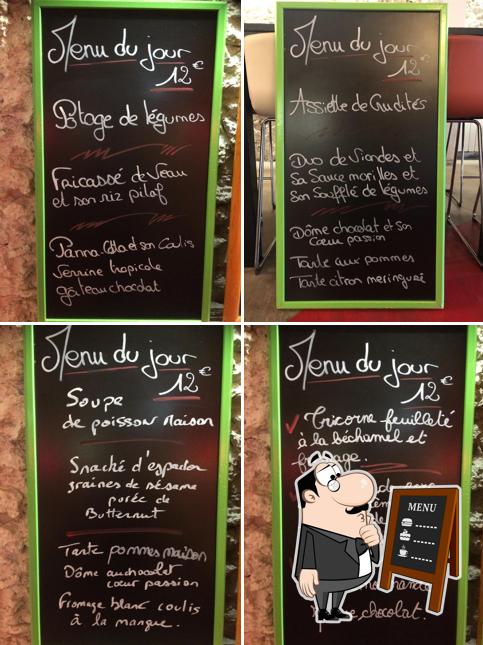 Menu du jour
12€
Potage de légumes
Fricassé de Veau
et son riz pilaf
Panna Cotta et son Coulis
Verrine tropicale
gâteau chocolat
Menu du jour
12€
Assiette de Crudités
Duo de Viandes et
sa Sauce morilles et
son Soufflé de légumes
Dôme chocolat et son
cœur passion
Tarte aux pommes
Tarte citron meringuée
Menu du jour
12€
Soupe
de poisson Maison
Snacké d'espadon
graines de sésame
purée de
Butternut
Tarte pommes maison
Dôme au chocolat
cœur passion
Fromage blanc coulis
à la mangue.
Menu du jour
12€
Tricorne feuilleté
à la béchamel et
MENU
chocolat.